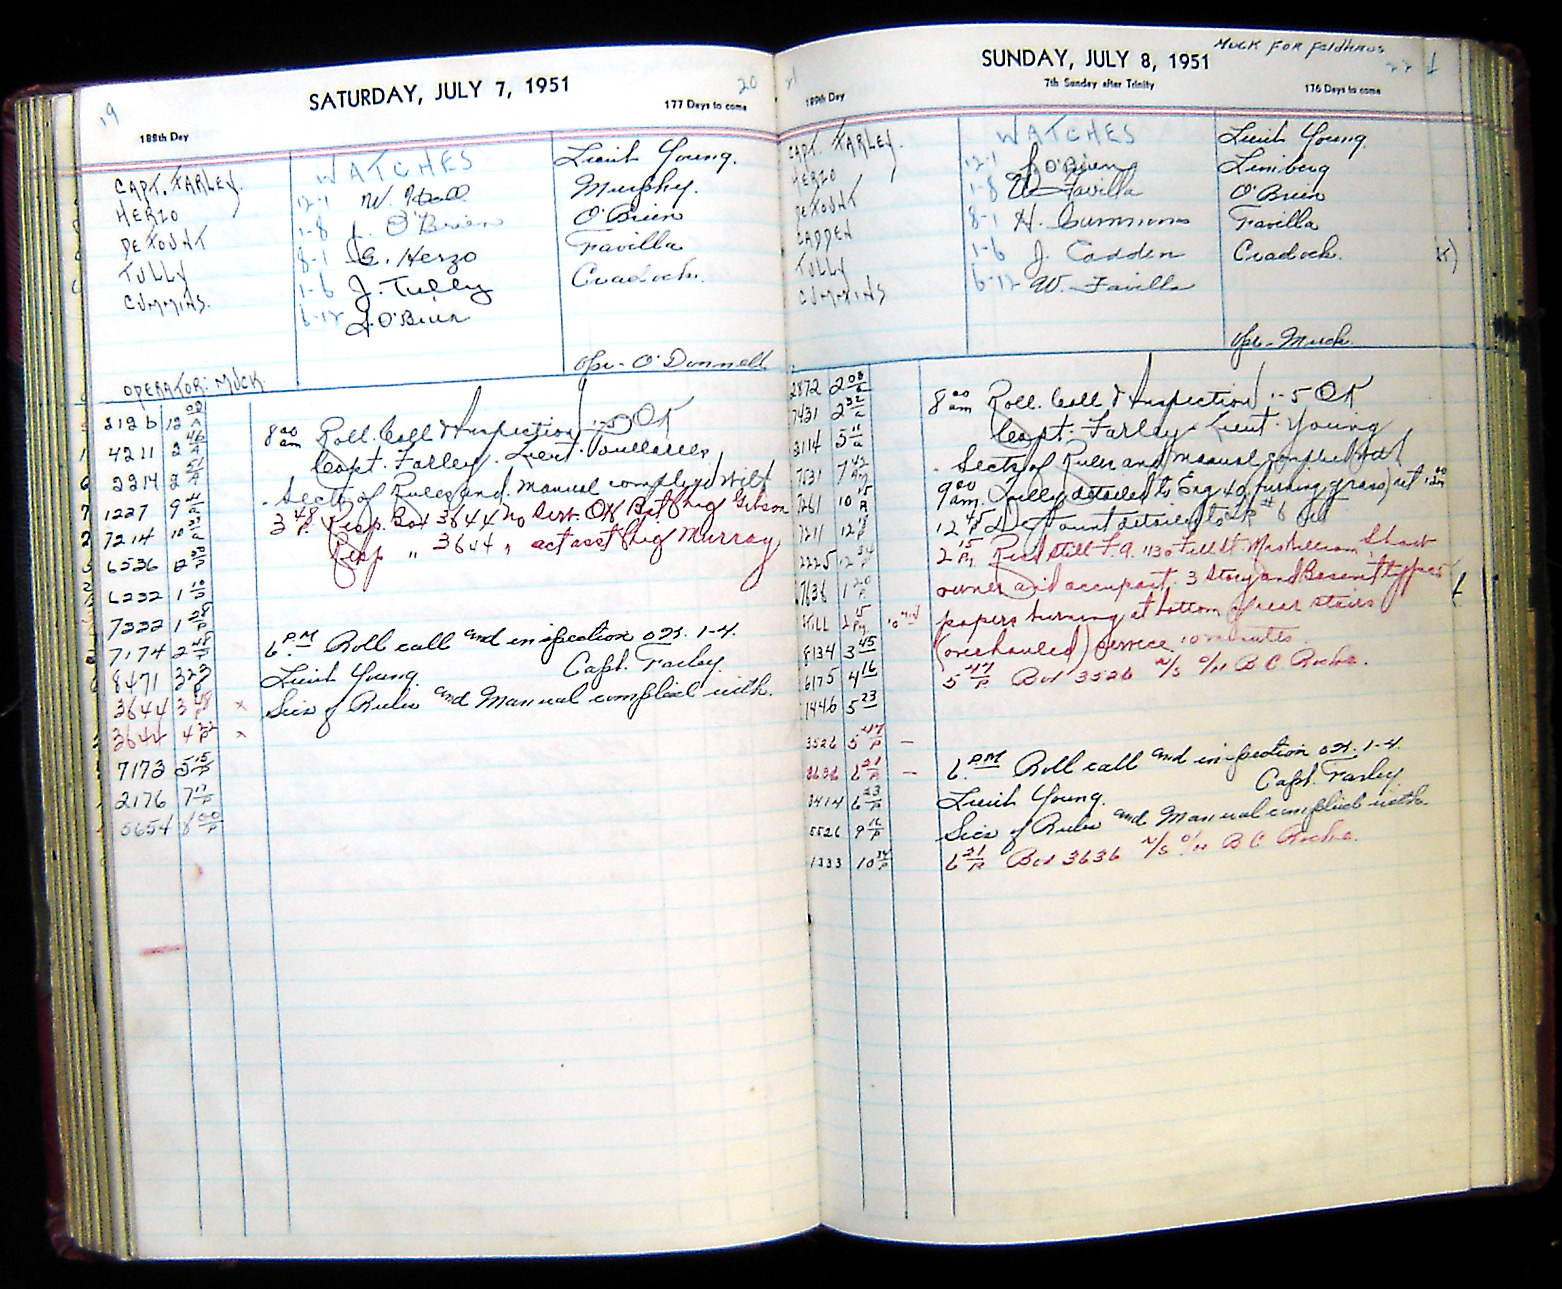 19
SATURDAY, JULY 7, 1951
20
188th Day
177 Days to come
WATCHES
CAPT. FARLEY.
HERZO
DE FOUNT
TULLY
CUMMINS.
12-1 W. Hall
1-8 J. O'Brien
8-1 G. Herzo
1-6 J. Tully
6-12 J. O'Brien
Lieut Young.
Murphy.
O'Brien
Favilla
Cradock.
Opr- O'Donnell
OPERATOR: MUCK
2126 12 00 A
4211 2 46 A
2214 2 51 A
1227 9 A
7214 10 A
6536 12 P
6232 1 10 P
7222 1 28 P
7174 2 48 P
8471 3 23 P
3644 3 48 P x
3644 4 22 P x
7173 5 15 P
2176 7 17 P
5654 8 00 P
8 00 am Roll. Call & Inspection 1-5 OK
Capt. Farley - Lieut.
Sects of Rules and Manual complyed with
3 48 P Resp. Box 3644 no Serv. OK Bat Chief Gibson
Resp " 3644 " act asst Chief Murray
6 P.M Roll call and inspection OK. 1-4.
Lieut Young. Capt. Farley.
Secs of Rules and Manual complied with.
21
SUNDAY, JULY 8, 1951
MUCK FOR FELDHAUS
22
189th Day
7th Sunday after Trinity
176 Days to come
WATCHES
CAPT. FARLEY.
HERZO
DE FOUNT
CADDEN
TULLY
CUMMINS
12-1 J. O'Brien
1-8 W. Favilla
8-1 H. Cummins
1-6 J. Cadden
6-12 W. Favilla
Lieut Young
Limberg
O'Brien
Favilla
Cradock.
Opr- Muck.
2872 2 08 A
7431 2 32 A
3114 5 11 A
7531 7 42 AM
7261 10 15 A
7211 12 P
2225 12 34 P
7636 1 20 P
STILL 2 15 PM 10 min
8134 3 45
6175 4 16
1446 5 23
3526 5 47 P -
3636 6 21 P -
3414 6 23 P
5526 9 16 P
1333 10 P
8 00 am Roll. Call & Inspection 1-5 OK
Capt. Farley - Lieut. Young
Sects of Rules and Manual complied with
9 00 am. Tully detailed to Eng 40 (burning grass) ret
12 45 P De Fount detailed to # 6
2 15 PM. Recd Still F.A. 1130 Fell St. Mrs William Shaw
owner and occupant. 3 Story and Basement type
papers burning at bottom of rear stairs
(overhauled) service 10 minutes.
5 47 P Box 3526 N/S O/H B C Roche.
6 P.M Roll call and inspection OK. 1-4.
Lieut Young. Capt. Farley
Secs of Rules and Manual complied with.
6 21 P Box 3636 N/S O/H B C Roche.